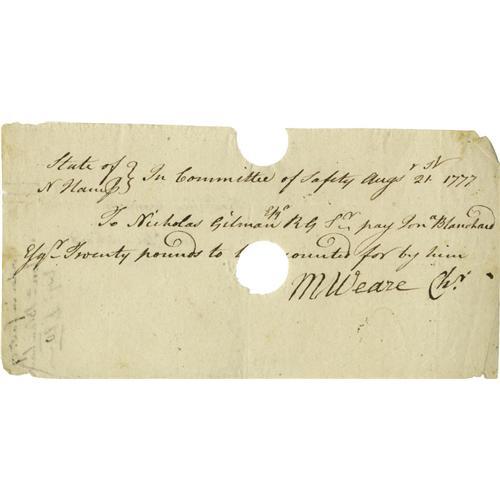 State of } In Committee of Safety Augst 21st 1777
N Hamps }
To Nicholas Gilman Esqr R G Sr pay Jona Blanchard
Esqr Twenty pounds to be accounted for by him
M Weare Chr